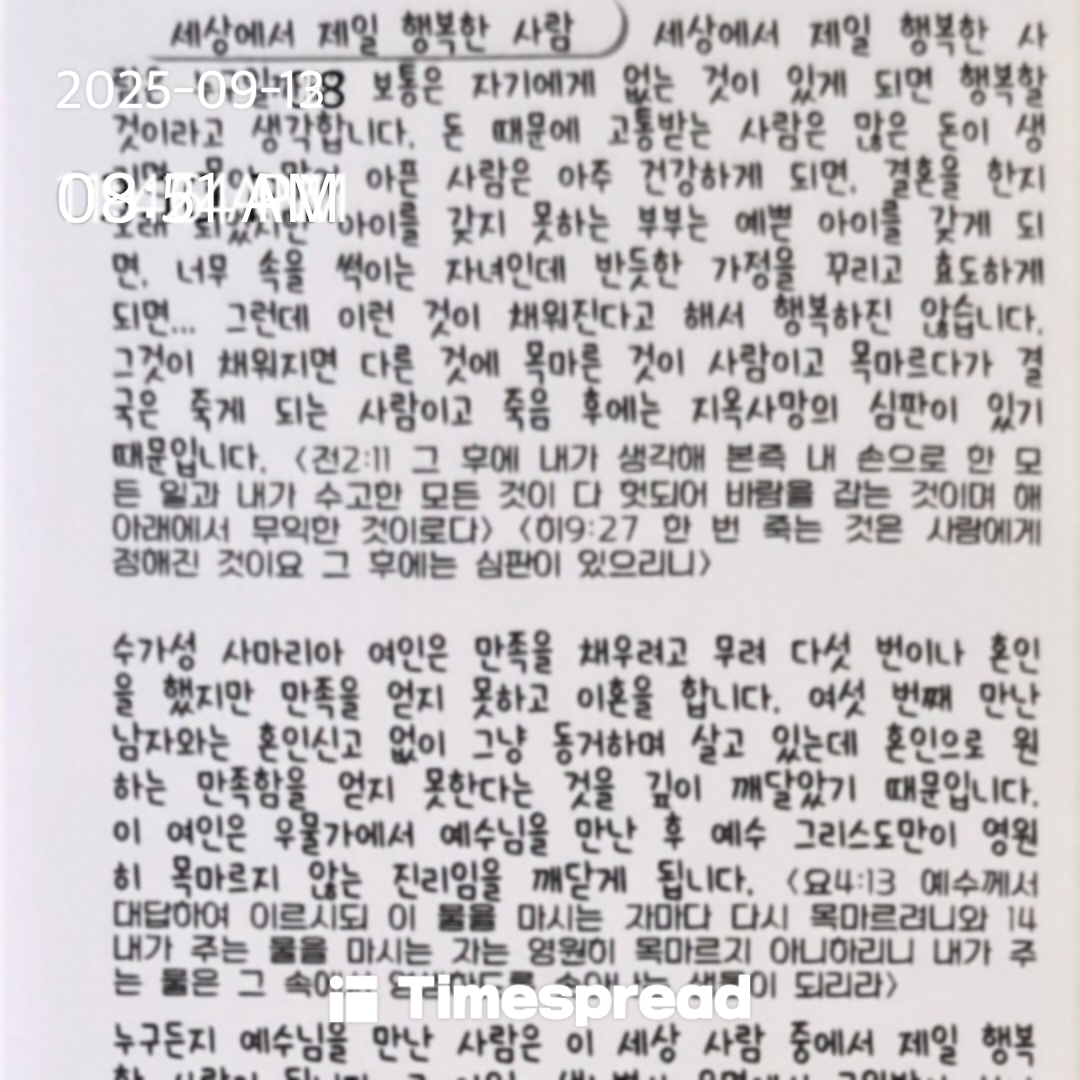 세상에서 제일 행복한 사람 세상에서 제일 행복한 사
2025-09-13 보통은 자기에게 없는 것이 있게 되면 행복할
것이라고 생각합니다. 돈 때문에 고통받는 사람은 많은 돈이 생
아픈 사람은 아주 건강하게 되면, 결혼을 한지
08:51 AM
오래 되었지만 아이를 갖지 못하는 부부는 예쁜 아이를 갖게 되
면, 너무 속을 썩이는 자녀인데 반듯한 가정을 꾸리고 효도하게
되면... 그런데 이런 것이 채워진다고 해서 행복하진 않습니다.
그것이 채워지면 다른 것에 목마른 것이 사람이고 목마르다가 결
국은 죽게 되는 사람이고 죽음 후에는 지옥사망의 심판이 있기
때문입니다. <전2:11 그 후에 내가 생각해 본즉 내 손으로 한 모
든 일과 내가 수고한 모든 것이 다 헛되어 바람을 잡는 것이며 해
아래에서 무익한 것이로다> <히9:27 한 번 죽는 것은 사람에게
정해진 것이요 그 후에는 심판이 있으리니>
수가성 사마리아 여인은 만족을 채우려고 무려 다섯 번이나 혼인
을 했지만 만족을 얻지 못하고 이혼을 합니다. 여섯 번째 만난
남자와는 혼인신고 없이 그냥 동거하며 살고 있는데 혼인으로 원
하는 만족함을 얻지 못한다는 것을 깊이 깨달았기 때문입니다.
이 여인은 우물가에서 예수님을 만난 후 예수 그리스도만이 영원
히 목마르지 않는 진리임을 깨닫게 됩니다. <요4:13 예수께서
대답하여 이르시되 이 물을 마시는 자마다 다시 목마르려니와 14
내가 주는 물을 마시는 자는 영원히 목마르지 아니하리니 내가 주
는 물은 그 속에서 되리라>
Timespread
누구든지 예수님을 만난 사람은 이 세상 사람 중에서 제일 행복